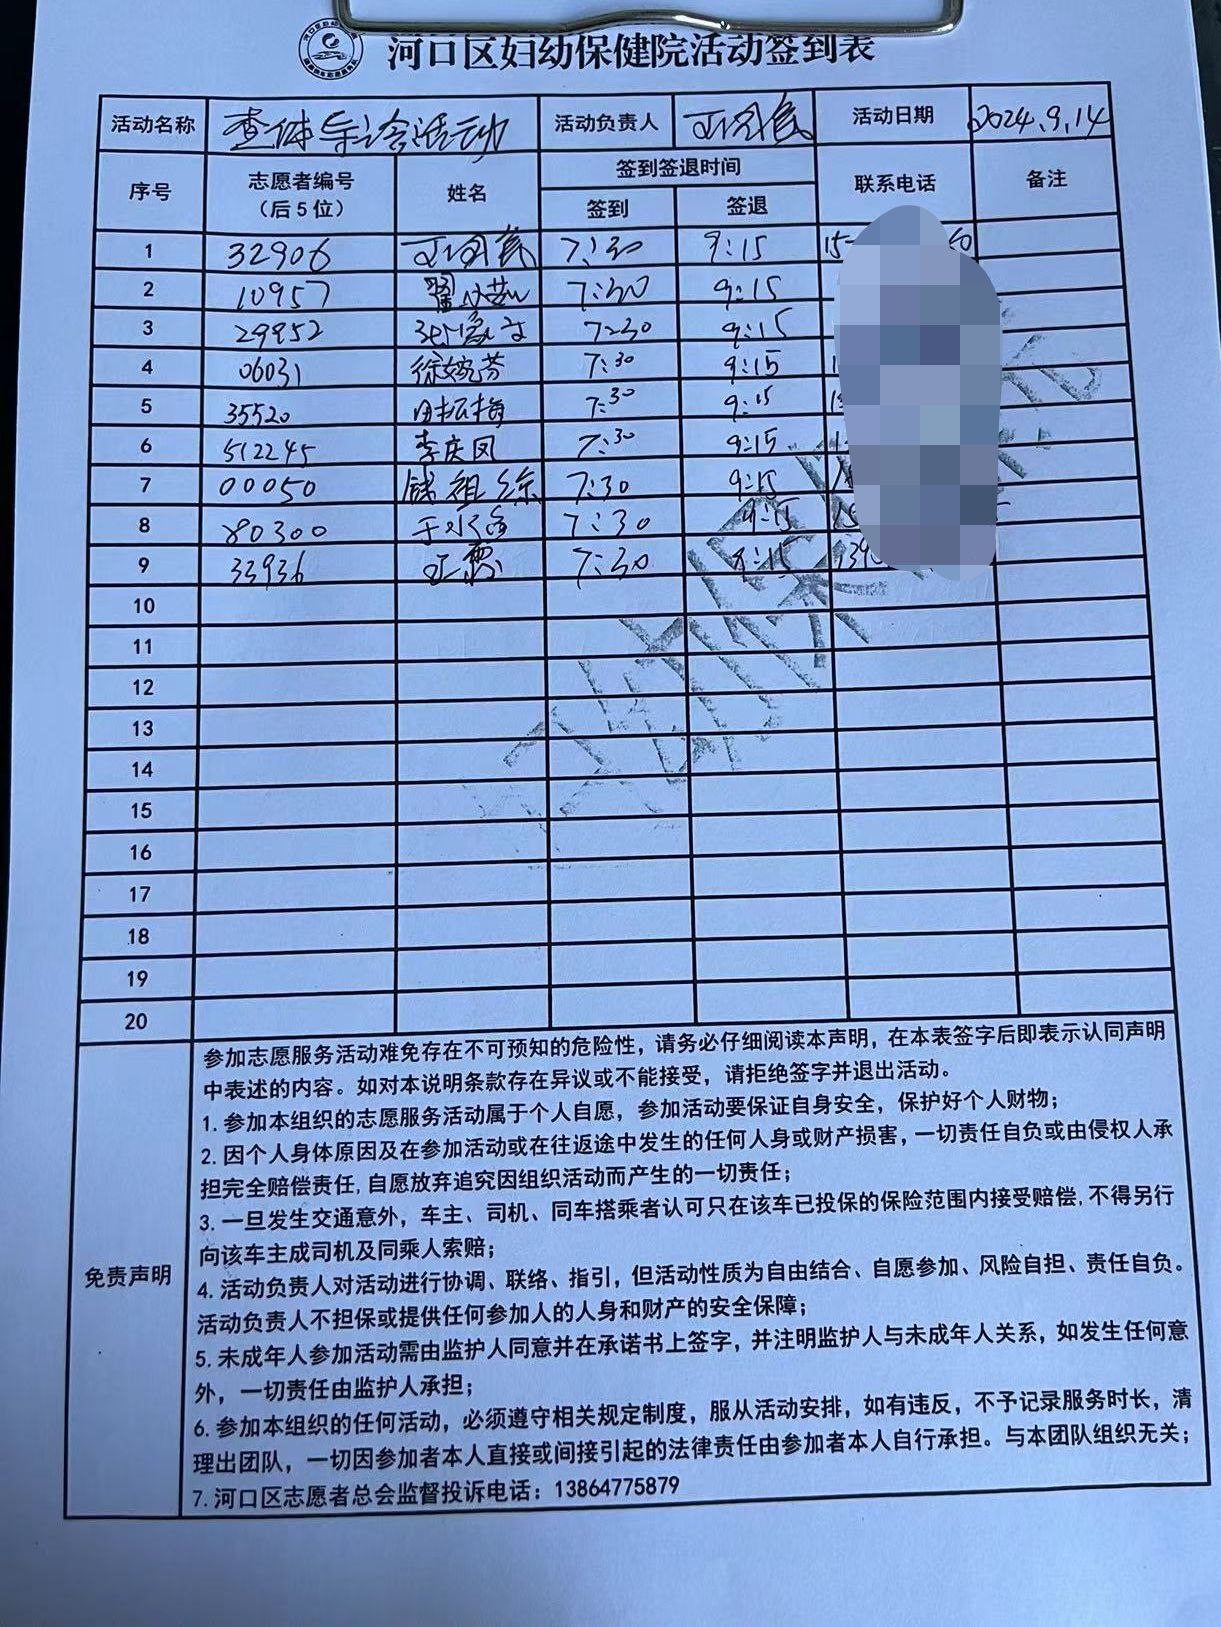 河口区妇幼保健院活动签到表
活动名称 查体导诊活动 活动负责人 活动日期 2024.9.14
序号 志愿者编号（后5位） 姓名 签到签退时间 联系电话 备注
签到 签退
1 32906 7:30 9:15
2 10957 7:30 9:15
3 29952 7:30 9:15
4 06031 徐婉芳 7:30 9:15
5 35520 7:30 9:15
6 512245 李庆凤 7:30 9:15
7 00050 7:30 9:15
8 80300 7:30 9:15
9 33936 7:30 9:15
10
11
12
13
14
15
16
17
18
19
20
免责声明
参加志愿服务活动难免存在不可预知的危险性，请务必仔细阅读本声明，在本表签字后即表示认同声明
中表述的内容。如对本说明条款存在异议或不能接受，请拒绝签字并退出活动。
1. 参加本组织的志愿服务活动属于个人自愿，参加活动要保证自身安全，保护好个人财物；
2. 因个人身体原因及在参加活动或在往返途中发生的任何人身或财产损害，一切责任自负或由侵权人承
担完全赔偿责任，自愿放弃追究因组织活动而产生的一切责任；
3. 一旦发生交通意外，车主、司机、同车搭乘者认可只在该车已投保的保险范围内接受赔偿，不得另行
向该车主成司机及同乘人索赔；
4. 活动负责人对活动进行协调、联络、指引，但活动性质为自由结合、自愿参加、风险自担、责任自负。
活动负责人不担保或提供任何参加人的人身和财产的安全保障；
5. 未成年人参加活动需由监护人同意并在承诺书上签字，并注明监护人与未成年人关系，如发生任何意
外，一切责任由监护人承担；
6. 参加本组织的任何活动，必须遵守相关规定制度，服从活动安排，如有违反，不予记录服务时长，清
理出团队，一切因参加者本人直接或间接引起的法律责任由参加者本人自行承担。与本团队组织无关；
7. 河口区志愿者总会监督投诉电话：13864775879